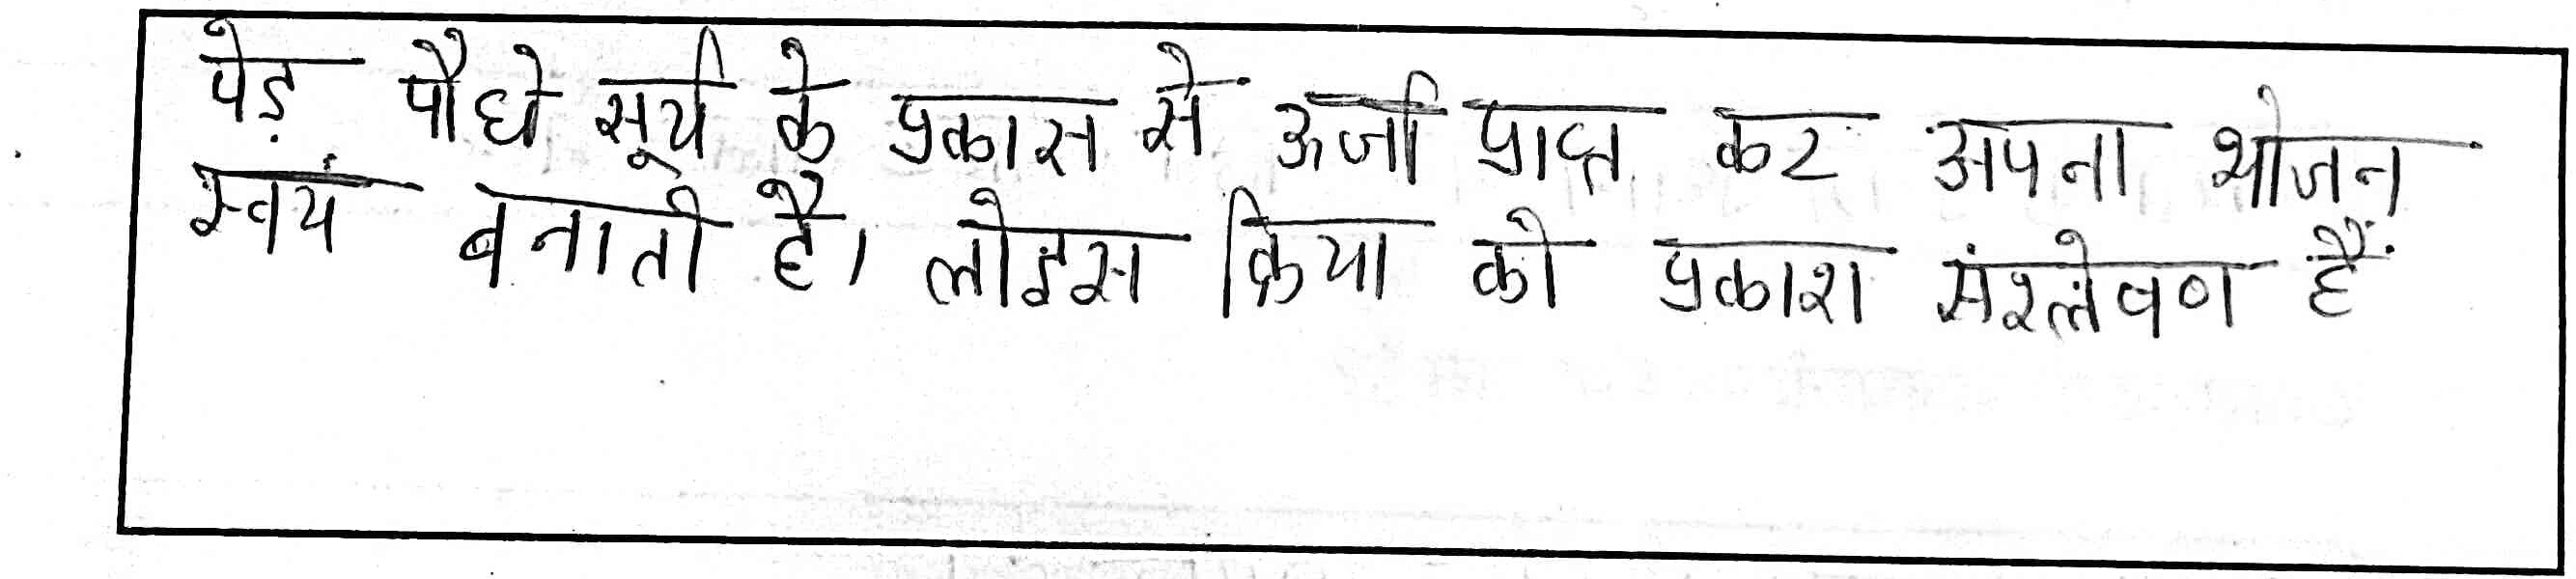 पेड़ पौधे सूर्य के प्रकास से ऊर्जा प्राप्त कर अपना भोजन
स्वयं बनाती है। लोइस क्रिया को प्रकाश संश्लेषण हैं